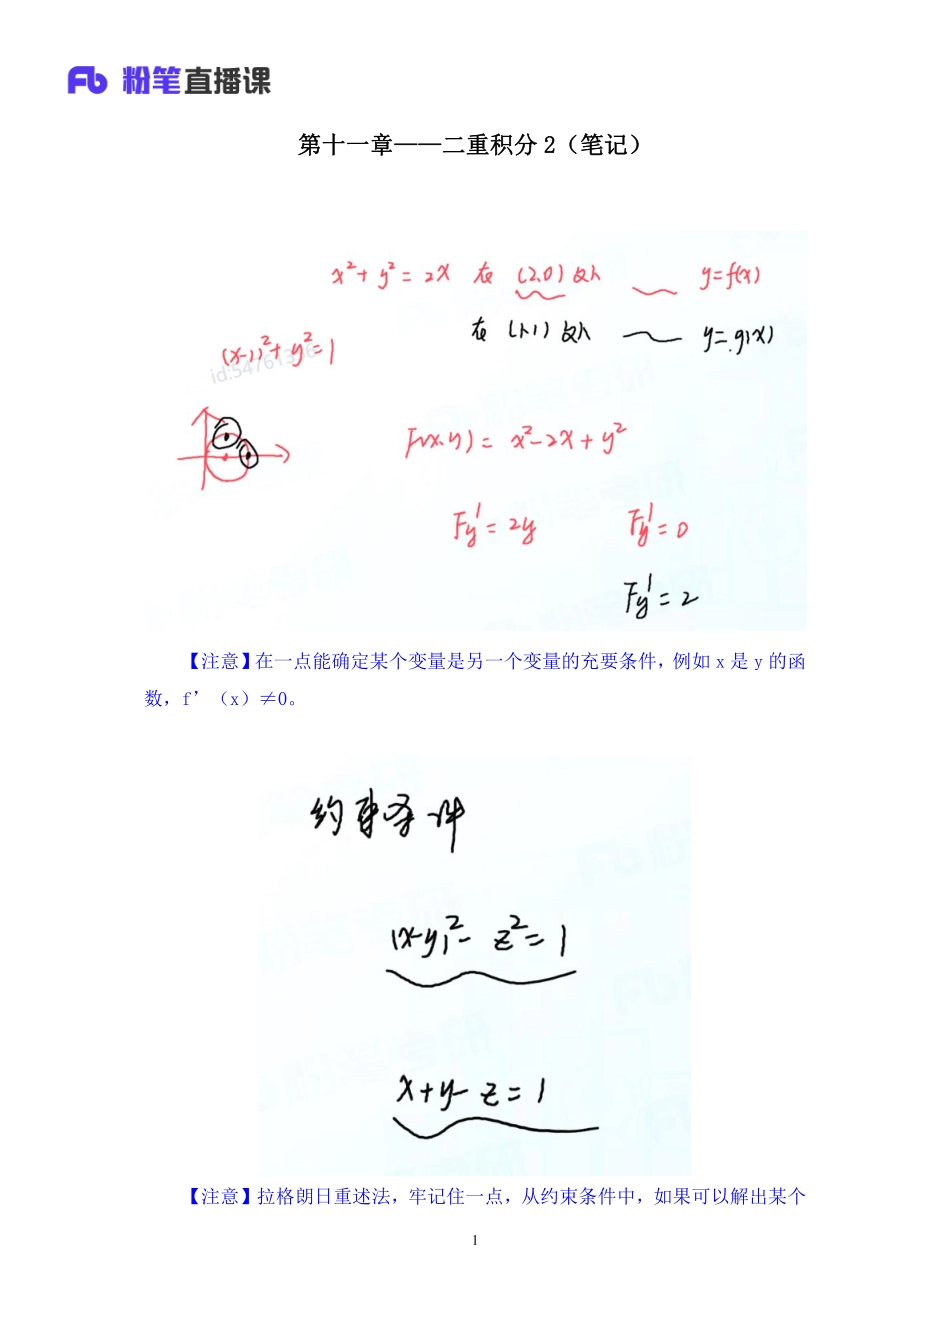 粉笔直播课
第十一章——二重积分 2（笔记）
x²+y²=2x 在 (2,0) 处 y=f(x)
在 (1,1) 处 y=g(x)
(x-1)²+y²=1
F(x,y)=x²-2x+y²
Fy'=2y Fy'=0
Fy'=2
【注意】在一点能确定某个变量是另一个变量的充要条件，例如 x 是 y 的函
数，f’（x）≠0。
约束条件
(x-y)²-z²=1
x+y-z=1
【注意】拉格朗日重述法，牢记住一点，从约束条件中，如果可以解出某个
1